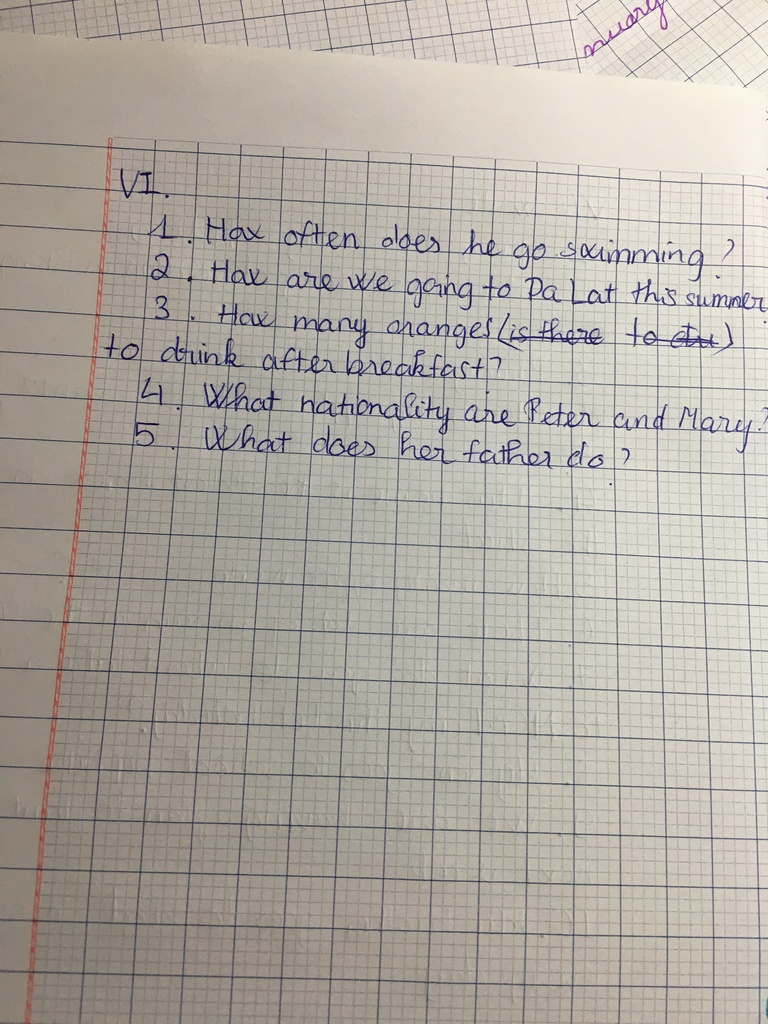 nuary
VI.
1. How often does he go swimming?
2. How are we going to Da Lat this summer
3. How many oranges (is there to )
to drink after breakfast?
4. What nationality are Peter and Mary?
5. What does her father do?